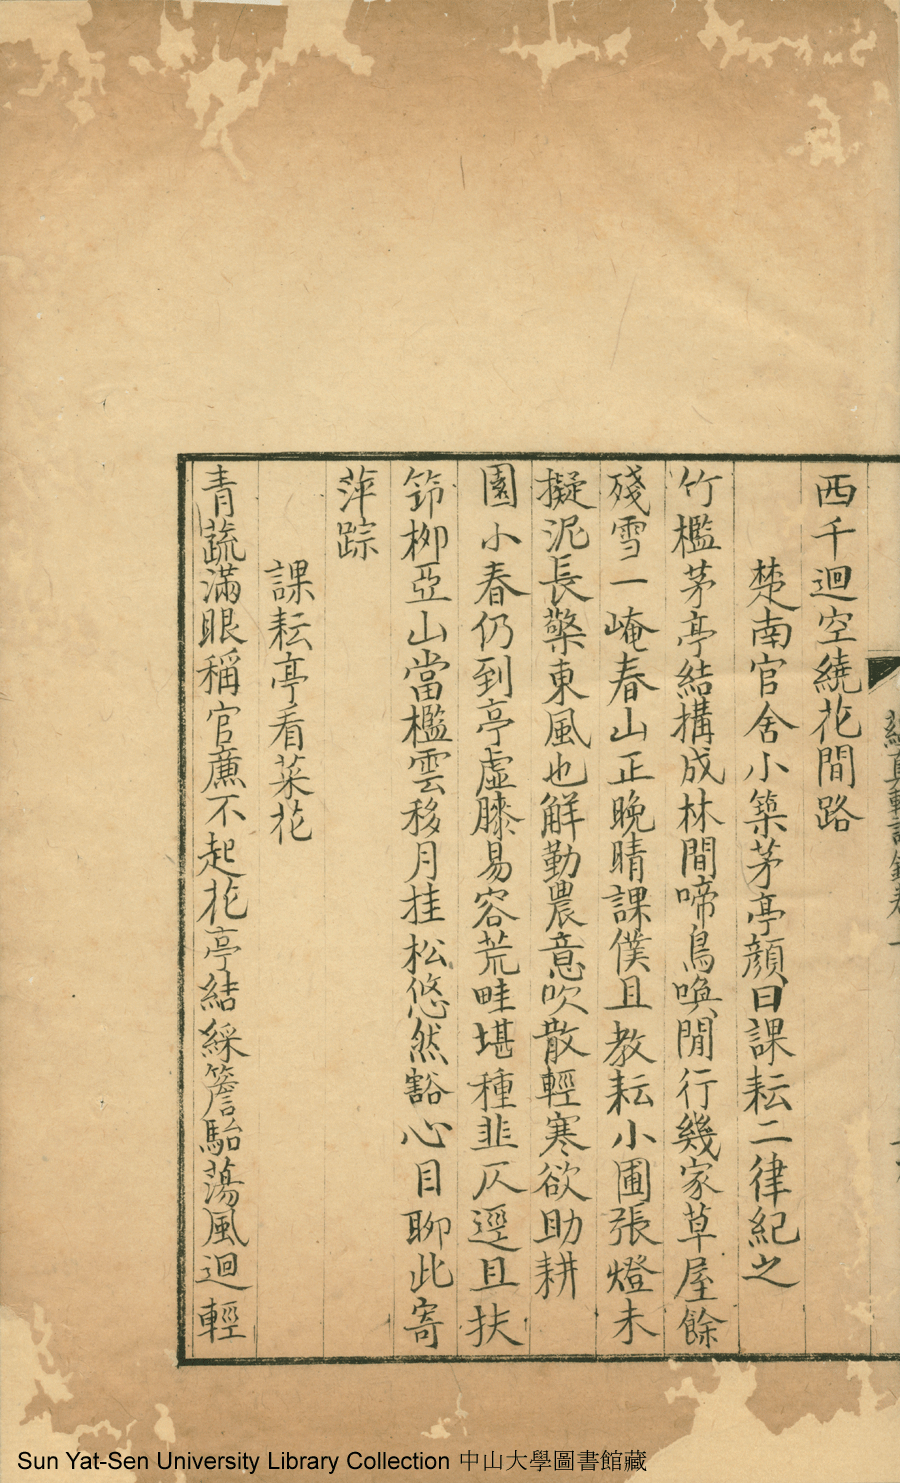 西千迴空繞花間路
楚南官舍小築茅亭顏曰課耘二律紀之
竹檻茅亭結搆成林間啼鳥喚閒行幾家草屋餘
殘雪一崦春山正晩晴課僕且教耘小圃張燈未
擬泥長檠東風也解勤農意吹散輕寒欲助耕
園小春仍到亭虛膝易容荒畦堪種韭仄逕且扶
筇柳亞山當檻雲移月挂松悠然豁心目聊此寄
萍踪
課耘亭看菜花
青蔬滿眼稱官廉不起花亭結綵簷駘蕩風迴輕
Sun Yat-Sen University Library Collection 中山大學圖書館藏